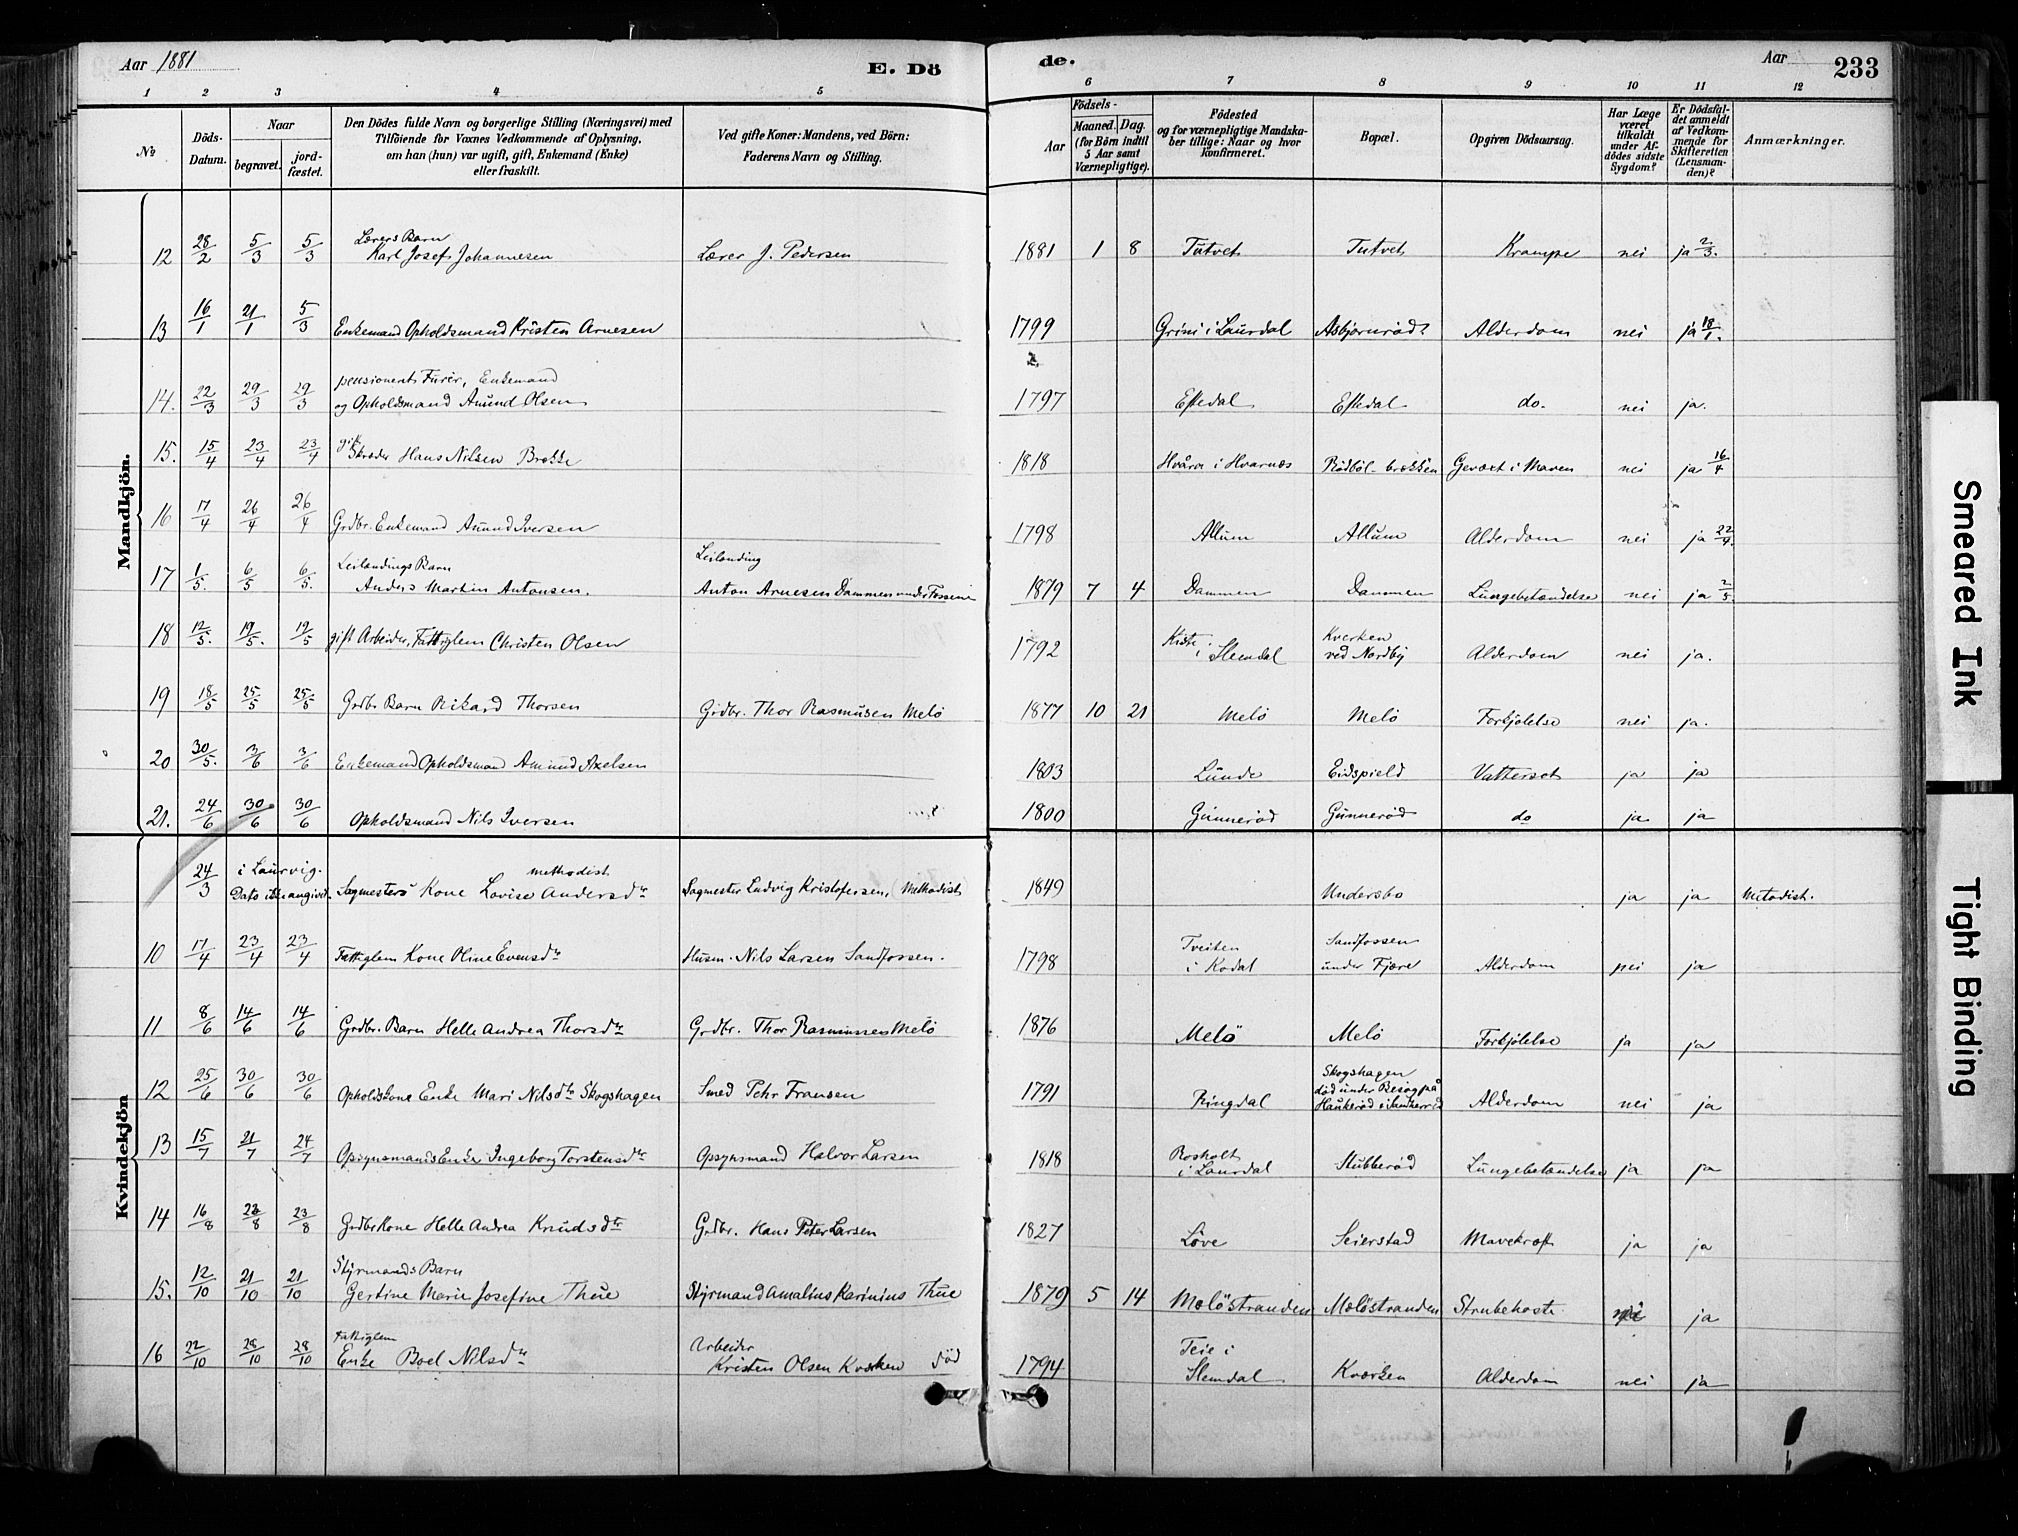 Aar 1881
E. Dö
de.
Aar
233
1 2 3 4 5 6 7 8 9 10 11 12
№
Döds-Datum.
Naar
begravet.
jordfæstet.
Den Dödes fulde Navn og borgerlige Stilling (Næringsvei) med
Tilföiende for Voxnes Vedkommende af Oplysning,
om han (hun) var ugift, gift, Enkemand (Enke)
eller fraskilt.
Ved gifte Koner: Mandens, ved Börn:
Faderens Navn og Stilling.
Födsels-
Aar
Maaned. Dag.
(for Börn indtil
5 Aar samt
Værnepligtige).
Födested
og for værnepligtige Mandska-
ber tillige: Naar og hvor
konfirmeret.
Bopæl.
Opgiven Dödsaarsag.
Har Læge
været
tilkaldt
under Af-
dödes sidste
Sygdom?
Er Dödsfal-
det anmeldt
af Vedkom-
mende for
Skifteretten
(Lensman-
den)?
Anmærkninger.
Mandkjön.
12 28/2 5/3 5/3 Lærers Barn
Karl Josef Johannesen Lærer J. Pedersen 1881 1 8 Tutvet Tutvet Krampe nei ja 2/3.
13 16/1 21/1 5/3 Enkemand Opholdsmand Kristen Arnesen 1799 Grini i Laurdal Asbjørnrød Alderdom nei ja 18/1.
14. 22/3 29/3 29/3 pensioneret Furér, Enkemand
og Opholdsmand Amund Olsen 1797 Eftedal Eftedal do. nei ja.
15. 15/4 23/4 23/4 gift
Skræder Hans Nilsen Brekke 1818 Hvåra i Hvarnæs Rødbøl-brækken Gevæxt i Maven nei ja 16/4
16 17/4 26/4 26/4 Grdbr. Enkemand Amund Iversen 1798 Allum Allum Alderdom nei ja 22/4.
17 1/5. 6/5 6/5. Leilændings Barn
Anders Martin Antonsen. Leilænding
Anton Arnesen Dammen under Fossene 1879 7 4 Dammen Dammen Lungebetændelse nei ja 2/5.
18 12/5. 19/5. 19/5 gift Arbeider, Fattiglem Christen Olsen 1792 i Slemdal Kverken
ved Nordby Alderdom nei ja.
19 18/5 25/5 25/5 Grdbr Barn Rikard Thorsen Grdbr. Thor Rasmusen Melø 1877 10 21 Melø Melø Forkjølelse nei ja.
20 30/5. 3/6 3/6 Enkemand Opholdsmand Amund Axelsen 1803 Lunde Eidspjeld Vattersot ja ja
21. 24/6 30/6 30/6 Opholdsmand Nils Iversen 1800 Gunnerød Gunnerød do ja ja
Kvindekjön
24/3 i Laurvig.
Dato ikke angivet. methodist
Sagmesters Kone Lovise Andersdtr Sagmester Ludvig Kristofersen, Methodist 1849 Undersbo ja ja Metodist.
10 17/4 23/4 23/4 Fattiglem Kone Oline Evensdtr Husm. Nils Larsen Sandfossen. 1798 Tveiten
i Kodal Sandfossen
under Fjære Alderdom nei ja
11 8/6 14/6 14/6 Grdbr. Barn Helle Andrea Thorsdtr Grdbr. Thor Rasmussen Melø 1876 Melö Melö Forkjølelse ja ja
12 25/6 30/6 30/6 Opholdskone Enke Mari Nilsdtr Skogshagen Smed Pehr Fransen 1791 Ringdal Skogshagen
død under Besøg på
Haukerød i Sandherred Alderdom nei ja
13 15/7 21/7 24/7 Opsynsmands Enke Ingeborg Torstensdtr Opsynsmand Halvor Larsen 1818 Rosholt
i Laurdal Stubberød Lungebetændelse ja ja
14 16/8 23/8 23/8 Grdbr Kone Helle Andrea Knudsdtr Grdbr. Hans Peter Larsen 1827 Løve Seierstad Mavekræft ja ja
15. 12/10 21/10 21/10 Styrmands Barn
Gertine Marie Josefine Thue Styrmand Amalius Karinius Thue 1879 5 14 Meløstranden Meløstranden Strubehoste. ja
16 22/10 28/10 28/10 Fattiglem
Enke Boel Nilsdtr Arbeider
Kristen Olsen Kværken død 1794 Teie i
Slemdal Kværken Alderdom nei ja
Smeared Ink
Tight Binding